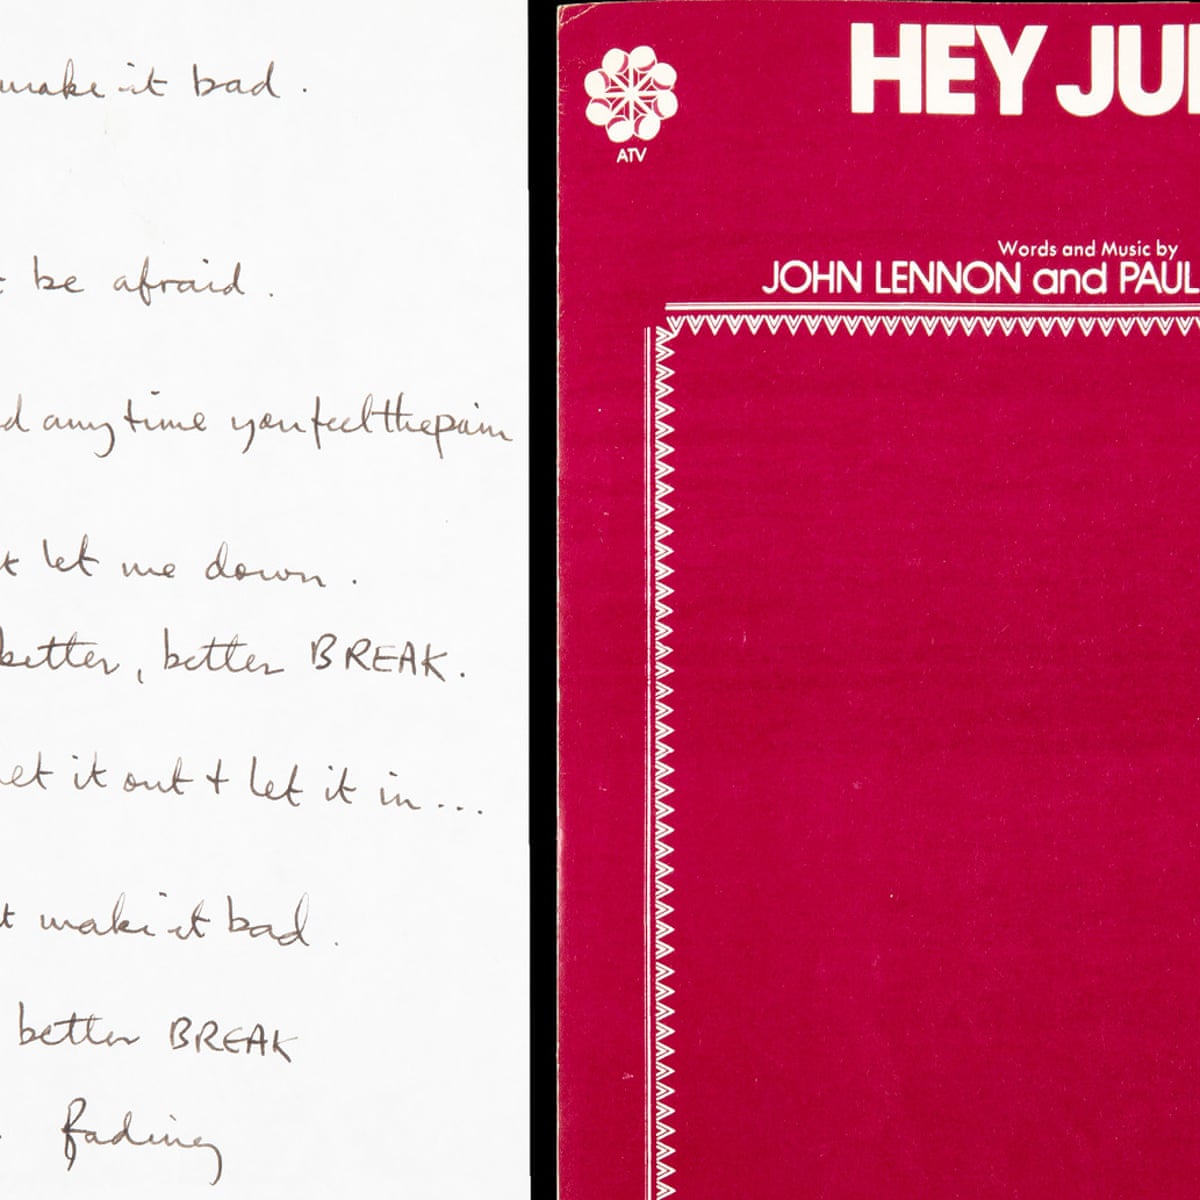 make it bad.
be afraid.
d any time you feel the pain
t let me down.
better, better BREAK.
et it out + let it in...
t make it bad.
better BREAK
fading
HEY JU
ATV
Words and Music by
JOHN LENNON and PAUL